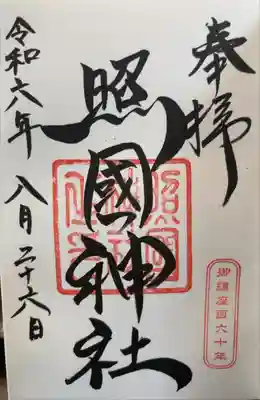 奉拝
照國神社
御鎮座百六十年
令和六年 八月二十六日